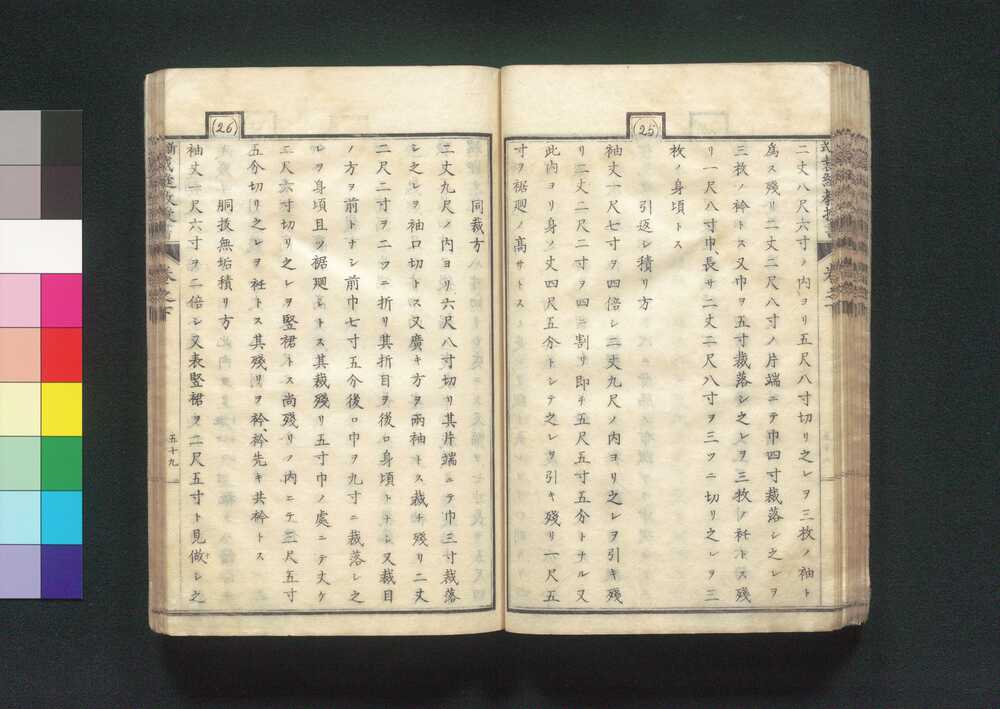 二丈八尺六寸ノ内ヨリ五尺八寸切リ之レヲ三枚ノ袖ト
爲ス殘リ二丈二尺八寸ノ片端ニテ巾四寸裁落シ之レヲ
三枚ノ衿トス又巾ヲ五寸裁落シ之レヲ三枚ノ衽トス殘
リ一尺八寸巾、長サ二丈二尺八寸ヲ三ツニ切リ之レヲ三
枚ノ身頃トス
(25)
引返シ積リ方
袖丈一尺七寸ヲ四倍シ二丈九尺ノ内ヨリ之レヲ引キ殘
リ二丈二尺二寸ヲ四ニ割リ即チ五尺五寸五分トナル又
此内ヨリ身ノ丈四尺五分トシテ之レヲ引キ殘リ一尺五
寸ヲ裾廻ノ高サトス
同裁方
二丈九尺ノ内ヨリ六尺八寸切リ其片端ニテ巾三寸裁落
シ之レヲ袖口切トス又廣キ方ヲ兩袖トス裁チ殘リ二丈
二尺二寸ヲ二ツニ折リ其折目ヲ後ロ身頃トナシ又裁目
ノ方ヲ前トナシ前巾七寸五分後ロ巾ヲ九寸ニ裁落シ之
レヲ身頃且ツ裾廻シトス其裁殘リ五寸巾ノ處ニテ丈ケ
二尺六寸切リ之レヲ竪裙トス尚殘リノ内ニテ三尺五寸
五分切リ之レヲ衽トス其殘リヲ衿、衿先キ共衿トス
(26)
胴拔無垢積リ方
袖丈一尺六寸ヲ二倍シ又表竪裙ヲ二尺五寸ト見做シ之
卷之下
五十九